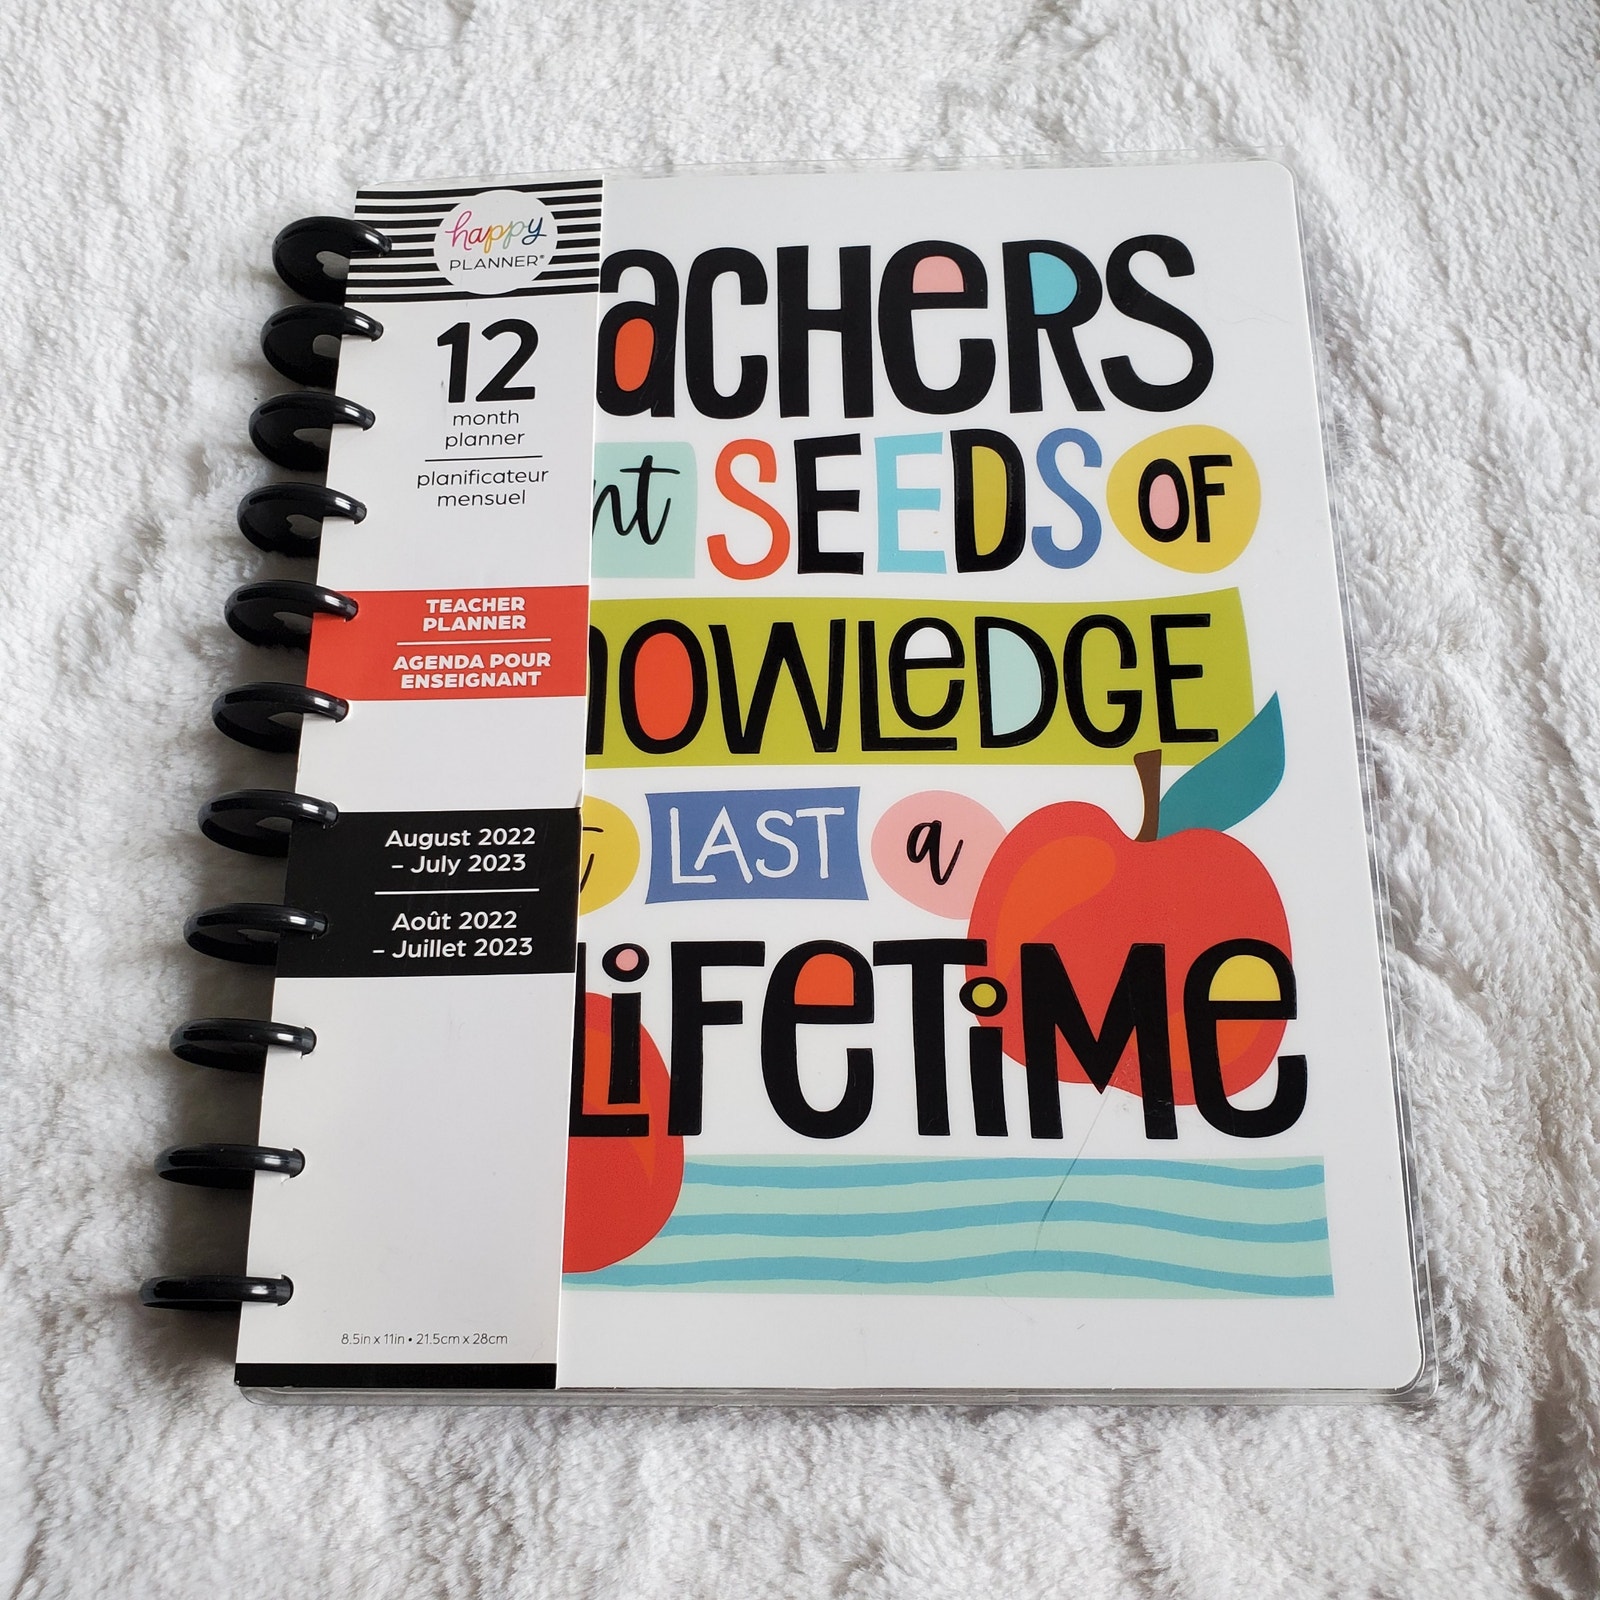 happy
PLANNER®
12
month
planner
planificateur
mensuel
TEACHER
PLANNER
AGENDA POUR
ENSEIGNANT
August 2022
– July 2023
Août 2022
– Juillet 2023
8.5in x 11in • 21.5cm x 28cm
aCHeRS
nt SEEDS OF
NOWLeDGE
LAST a
LiFeTiMe